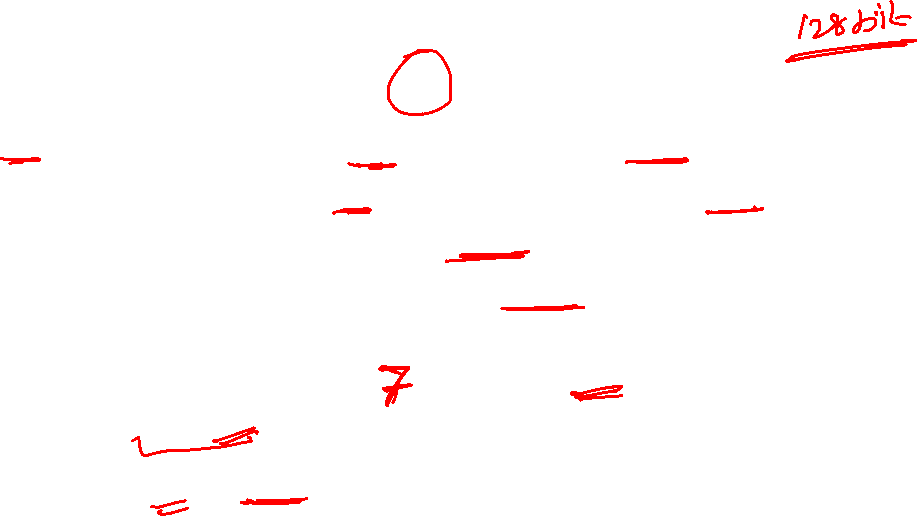 128 bit
7